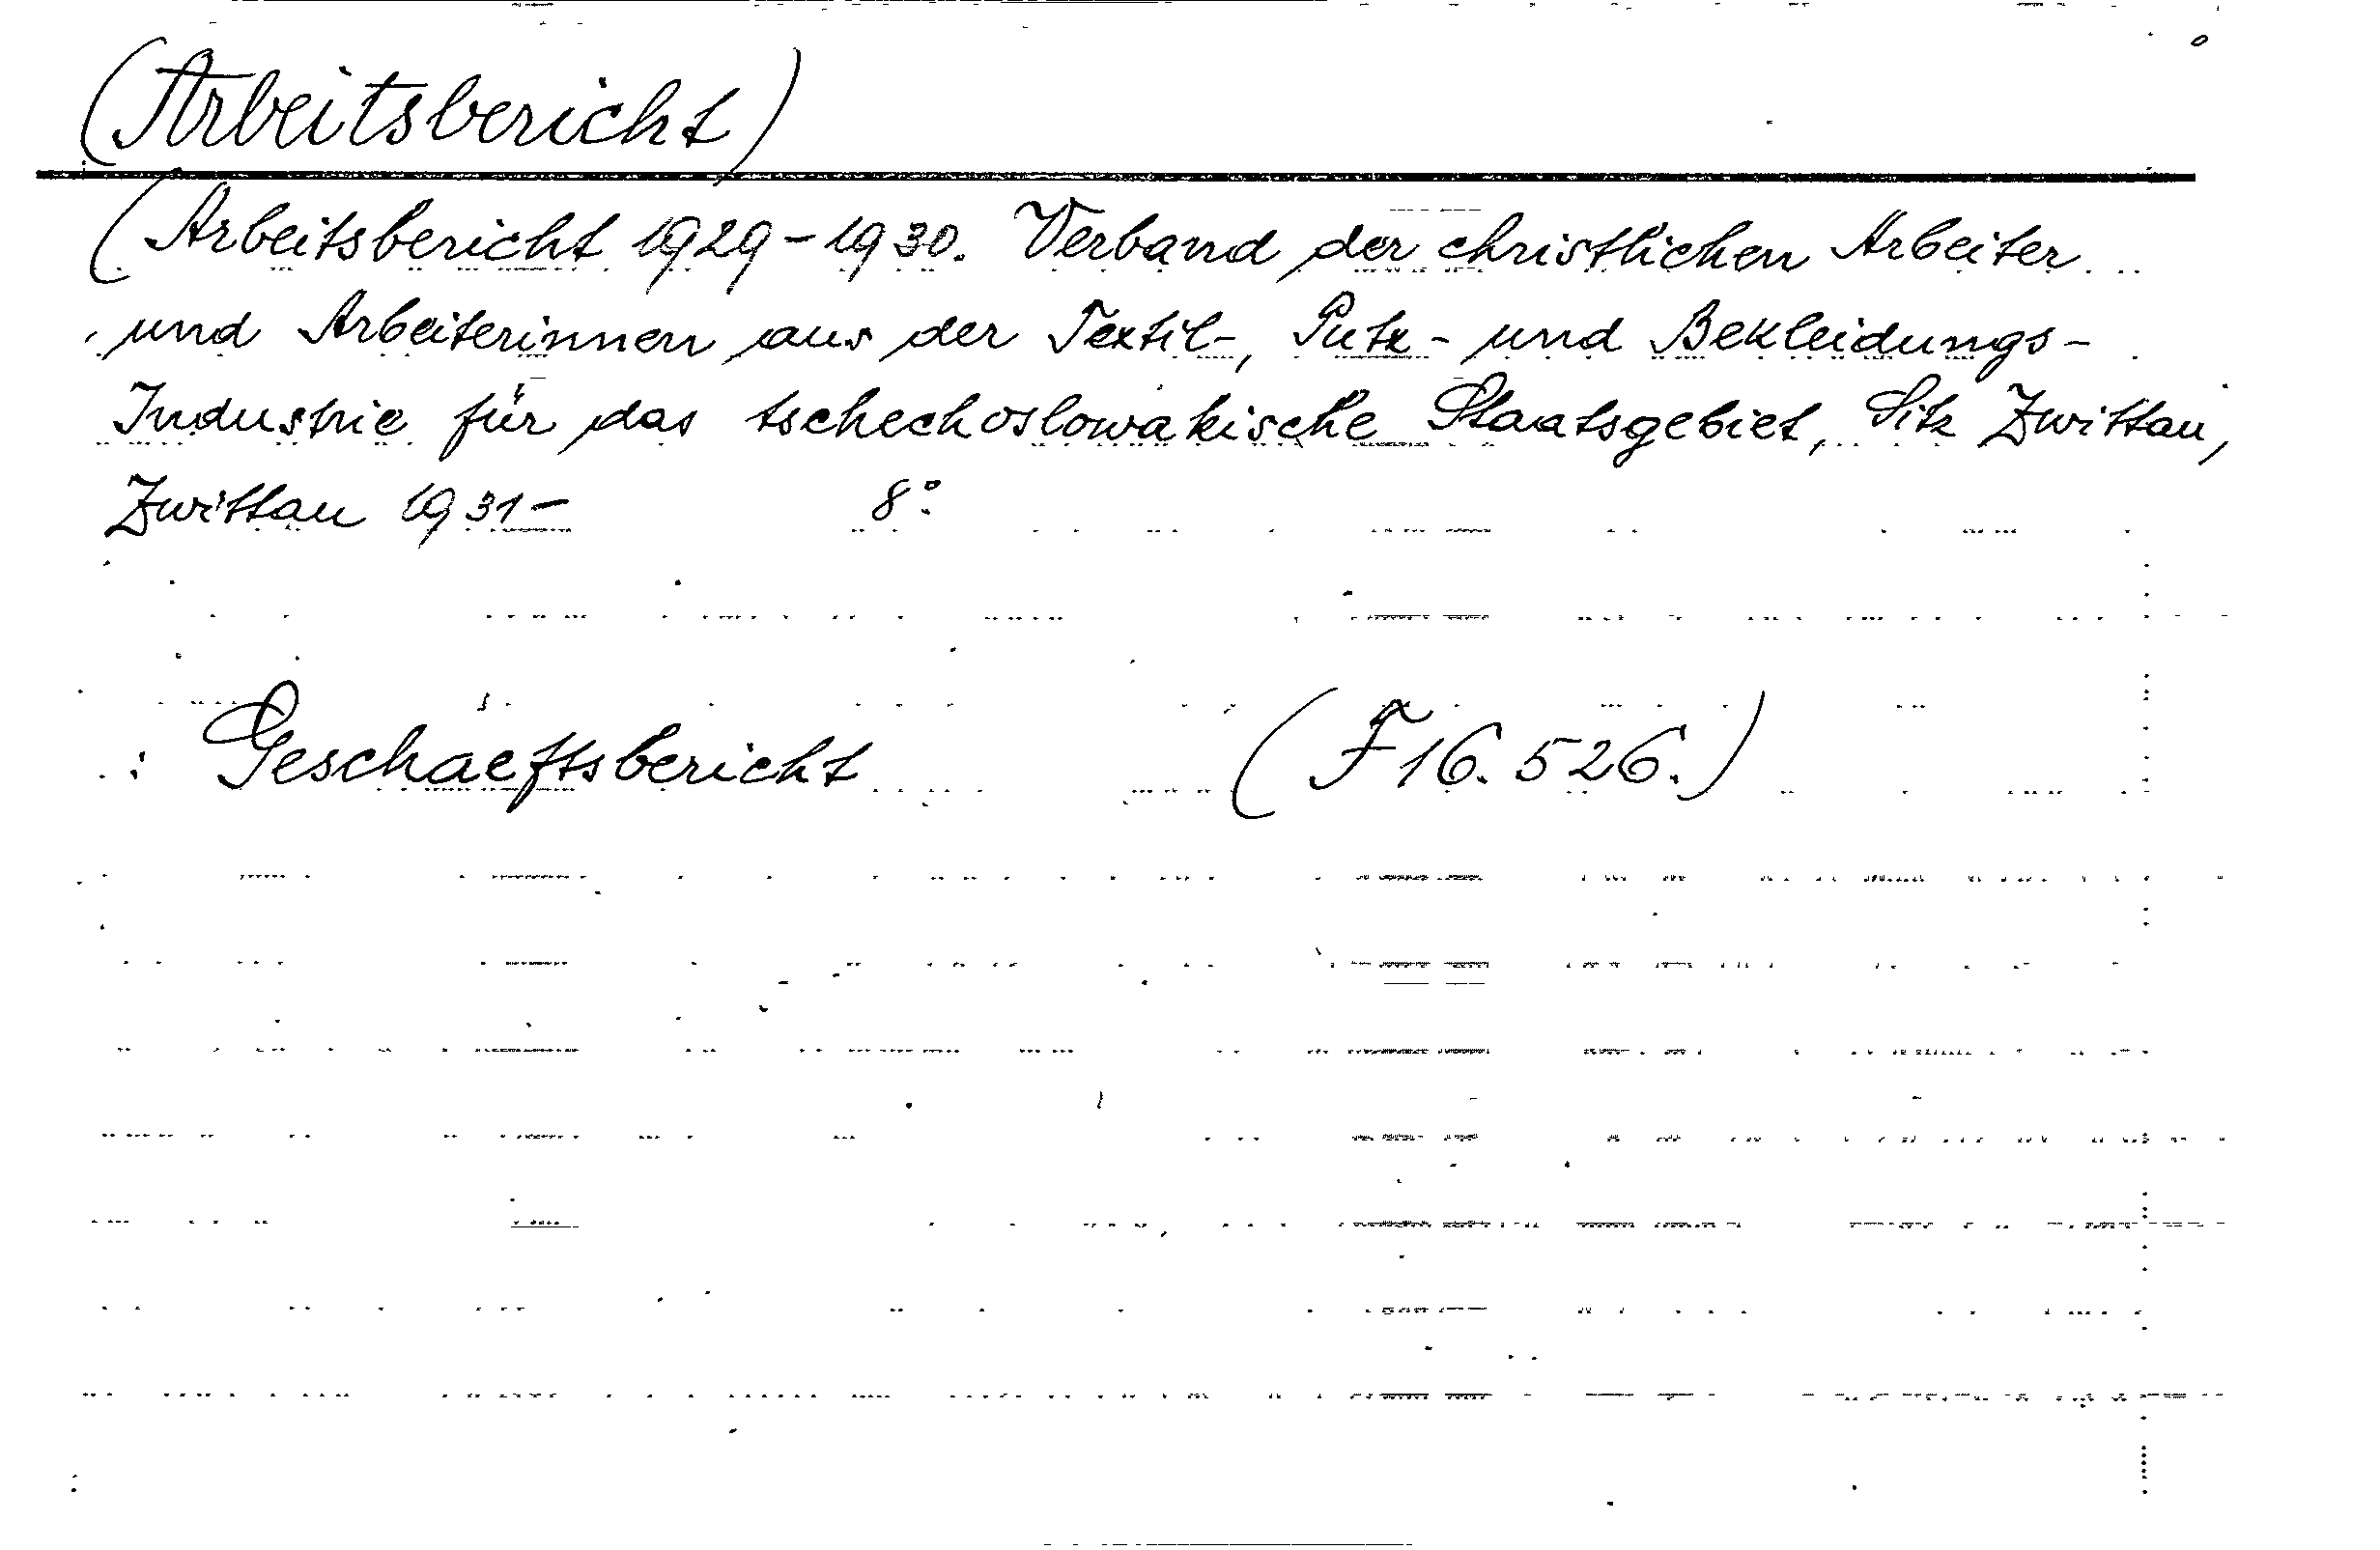 (Arbeitsbericht)
(Arbeitsbericht 1929-1930. Verband der christlichen Arbeiter
und Arbeiterinnen aus der Textil-, Putz- und Bekleidungs-
Industrie für das tschechoslowakische Staatsgebiet, Sitz Zwittau,
Zwittau 1931- 8°
: Geschaeftsbericht (F 16.526.)